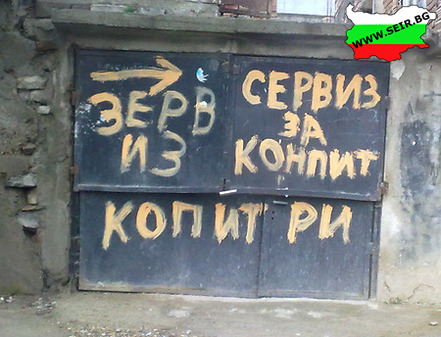 WWW.SEIR.BG
ЗЕРВ
ИЗ
СЕРВИЗ
ЗА
КОНПИТ
КОПИТРИ